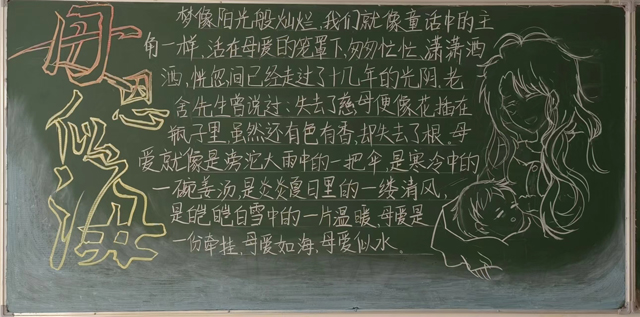 母恩似海
梦像阳光般灿烂，我们就像童话中的主
角一样，活在母爱的笼罩下，匆匆忙忙，潇潇洒
洒，恍忽间已经走过了十几年的光阴，老
舍先生曾说过：失去了慈母便像花插在
瓶子里，虽然还有色有香，却失去了根。母
爱就像是滂沱大雨中的一把伞，是寒冷中的
一碗姜汤，是炎炎夏日里的一缕清风，
是皑皑白雪中的一片温暖，母爱是
一份牵挂，母爱如海，母爱似水。